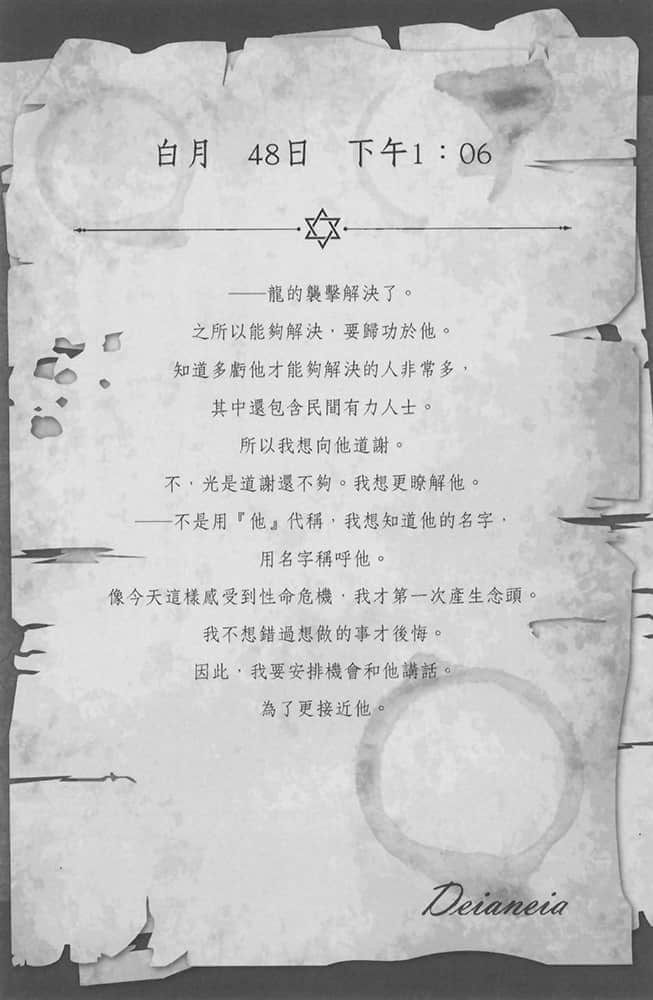 白月　48日　下午1：06
——龍的襲擊解決了。
之所以能夠解決，要歸功於他。
知道多虧他才能夠解決的人非常多，
其中還包含民間有力人士。
所以我想向他道謝。
不，光是道謝還不夠。我想更瞭解他。
——不是用『他』代稱，我想知道他的名字，
用名字稱呼他。
像今天這樣感受到性命危機，我才第一次產生念頭。
我不想錯過想做的事才後悔。
因此，我要安排機會和他講話。
為了更接近他。
Deianeia